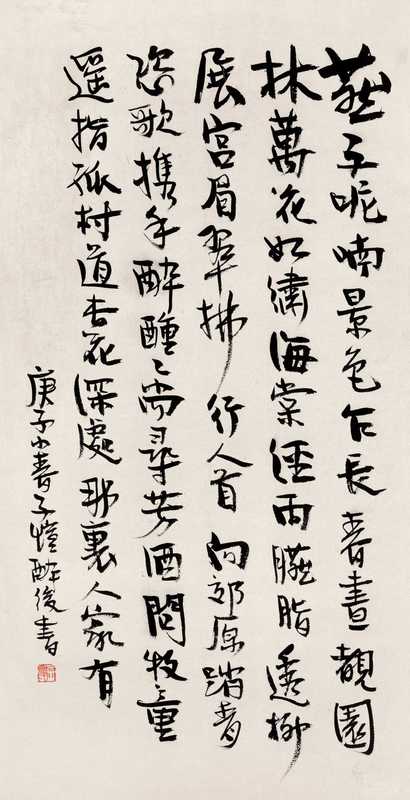 燕子呢喃景色乍長春晝覩園
林萬花如繡海棠經雨臙脂透柳
展宮眉翠拂行人首向郊原踏青
恣歌携手醉醺〻尚尋芳酒問牧童
遥指孤村道杏花深處那裏人家有
庚子小春子愷醉後書